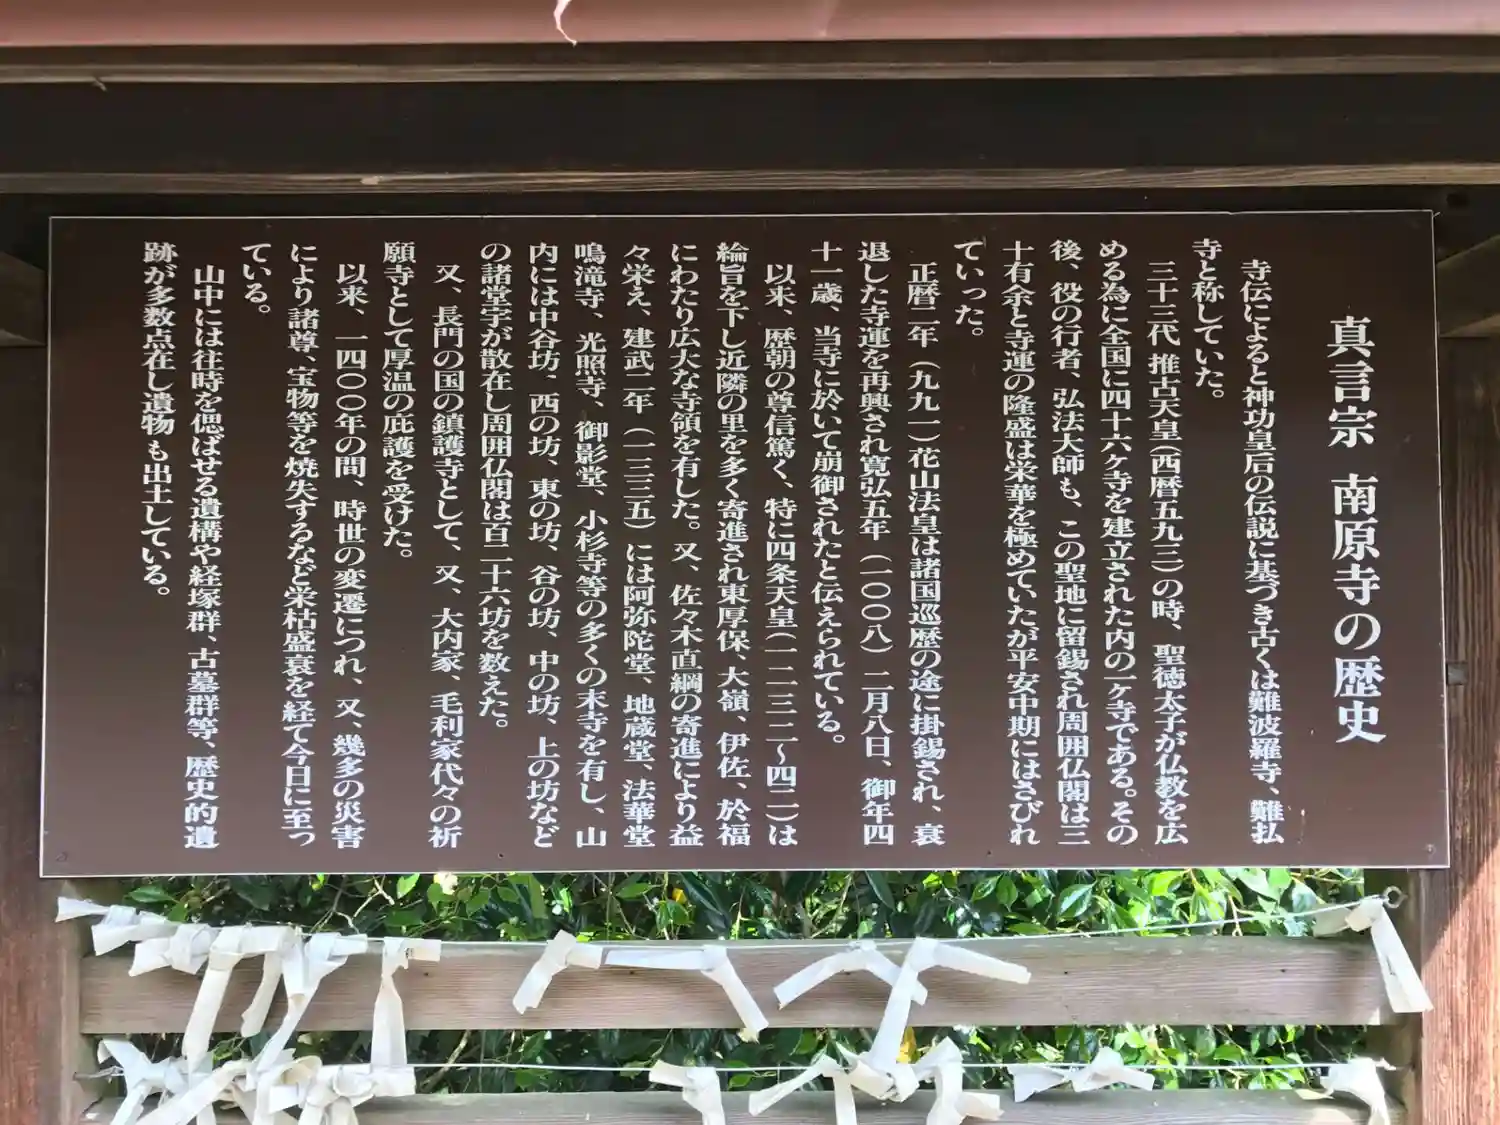 真言宗 南原寺の歴史
寺伝によると神功皇后の伝説に基づき古くは難波羅寺、難払
寺と称していた。
三十三代 推古天皇(西暦五九三)の時、聖徳太子が仏教を広
める為に全国に四十六ヶ寺を建立された内の一ヶ寺である。その
後、役の行者、弘法大師も、この聖地に留錫され周囲仏閣は三
十有余と寺運の隆盛は栄華を極めていたが平安中期にはさびれ
ていった。
正暦二年(九九一)花山法皇は諸国巡歴の途に掛錫され、衰
退した寺運を再興され寛弘五年(一〇〇八)二月八日、御年四
十一歳、当寺に於いて崩御されたと伝えられている。
以来、歴朝の尊信篤く、特に四条天皇(一二三二〜四二)は
綸旨を下し近隣の里を多く寄進され東厚保、大嶺、伊佐、於福
にわたり広大な寺領を有した。又、佐々木直綱の寄進により益
々栄え、建武二年(一三三五)には阿弥陀堂、地蔵堂、法華堂
鳴滝寺、光照寺、御影堂、小杉寺等の多くの末寺を有し、山
内には中谷坊、西の坊、東の坊、谷の坊、中の坊、上の坊など
の諸堂宇が散在し周囲仏閣は百二十六坊を数えた。
又、長門の国の鎮護寺として、又、大内家、毛利家代々の祈
願寺として厚温の庇護を受けた。
以来、一四〇〇年の間、時世の変遷につれ、又、幾多の災害
により諸尊、宝物等を焼失するなど栄枯盛衰を経て今日に至っ
ている。
山中には往時を偲ばせる遺構や経塚群、古墓群等、歴史的遺
跡が多数点在し遺物も出土している。